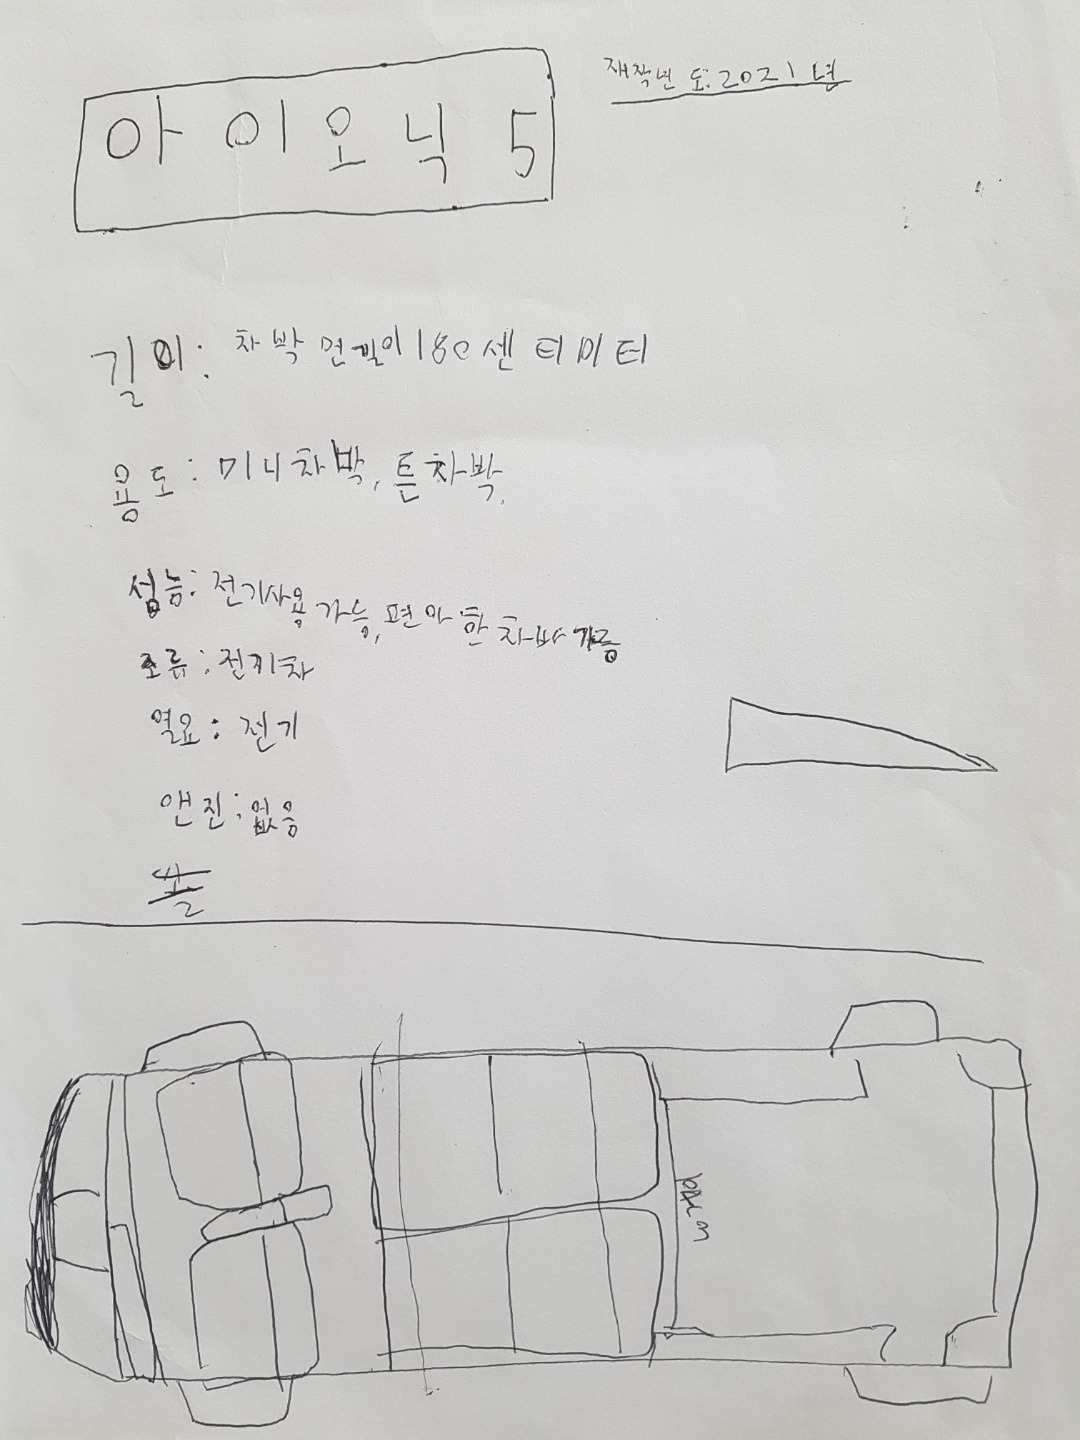 아이오닉 5
재작년 도: 2021년
길이: 차박 면 길이 180 센티미터
용도: 미니차박, 튼차박,
성능: 전기사용 가능, 편아한 차바 가능
조류: 전기차
열요: 전기
앤진: 없음